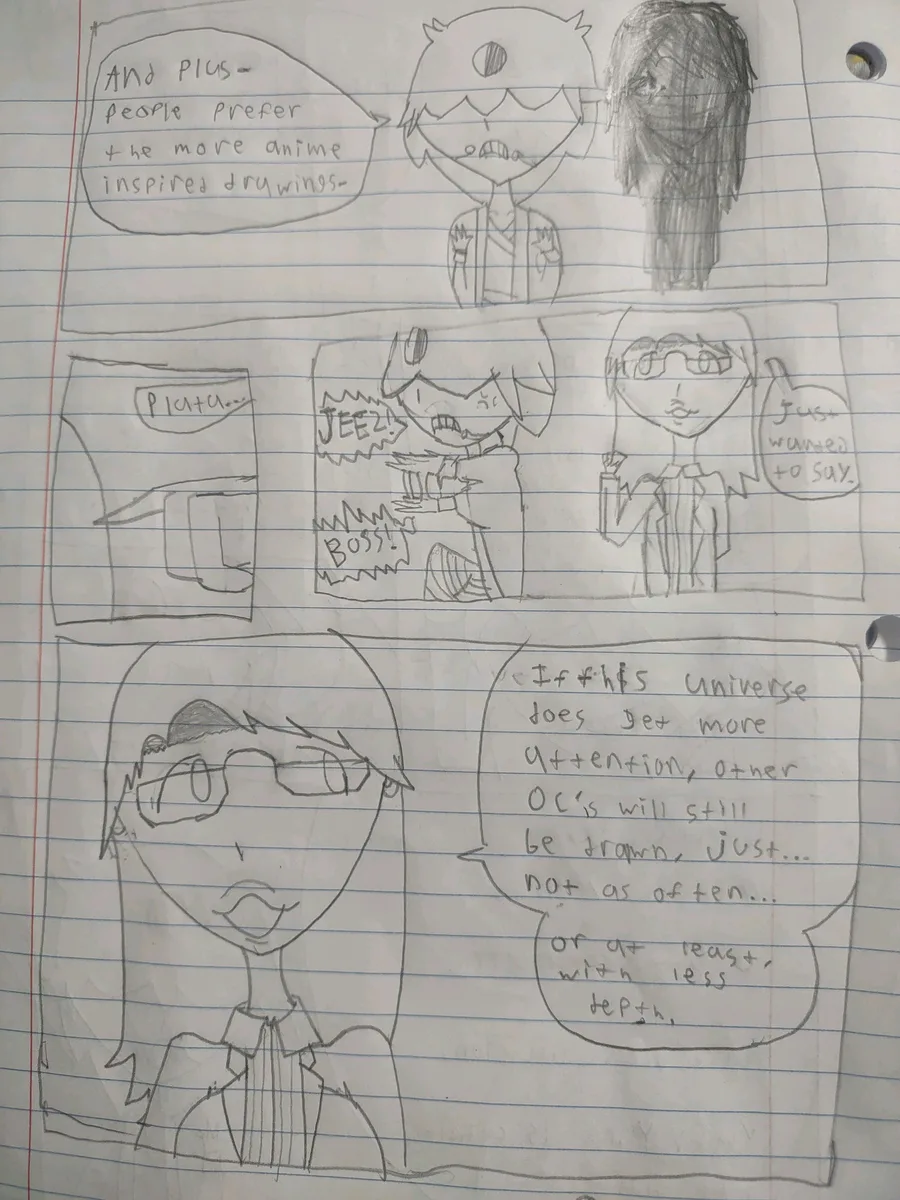 And Plus-
People prefer
the more anime
inspired drawings-
Plutu...
JEEZ!
BOSS!
Just
wanted
to say.
If this universe
does get more
attention, other
OC's will still
be drawn, just...
not as often...
or at least,
with less
depth.